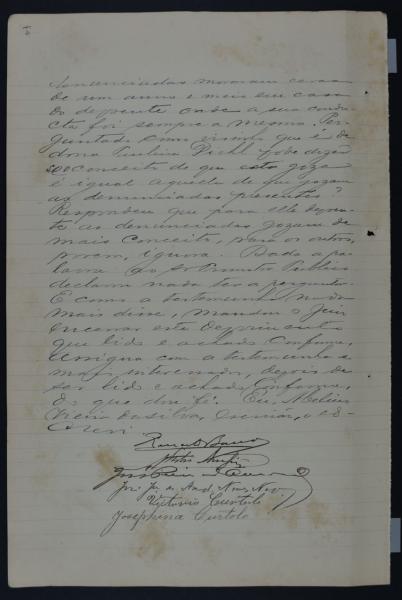 nunciadas moraram cerca
de um anno e mais em casa
do depoente onde a sua condu-
cta foi sempre a mesma. Per-
guntado como visinho que é de
dona Paulina Diehl pode dizer
se o conceito de que esta goza
é igual aquelle de que gozam
as denunciadas presentes?
Respondeu que para elle depoen-
te as denunciadas gozam de
mais conceito, para os outros,
porem, ignora. Dada a pa-
lavra ao Dr Promotor Publico
declarou nada ter a perguntar.
E como a testemunha nada
mais disse, mandou o Juiz
encerrar este depoimento
que lido e achado conforme,
assigna com a testemunha e
mais interessados, depois de
ser lido e achado conforme,
do que dou fé. Eu,
Vieira da Silva, Escrivão, o es-
crevi

José
Victorio Curtolo
Josephina Curtolo